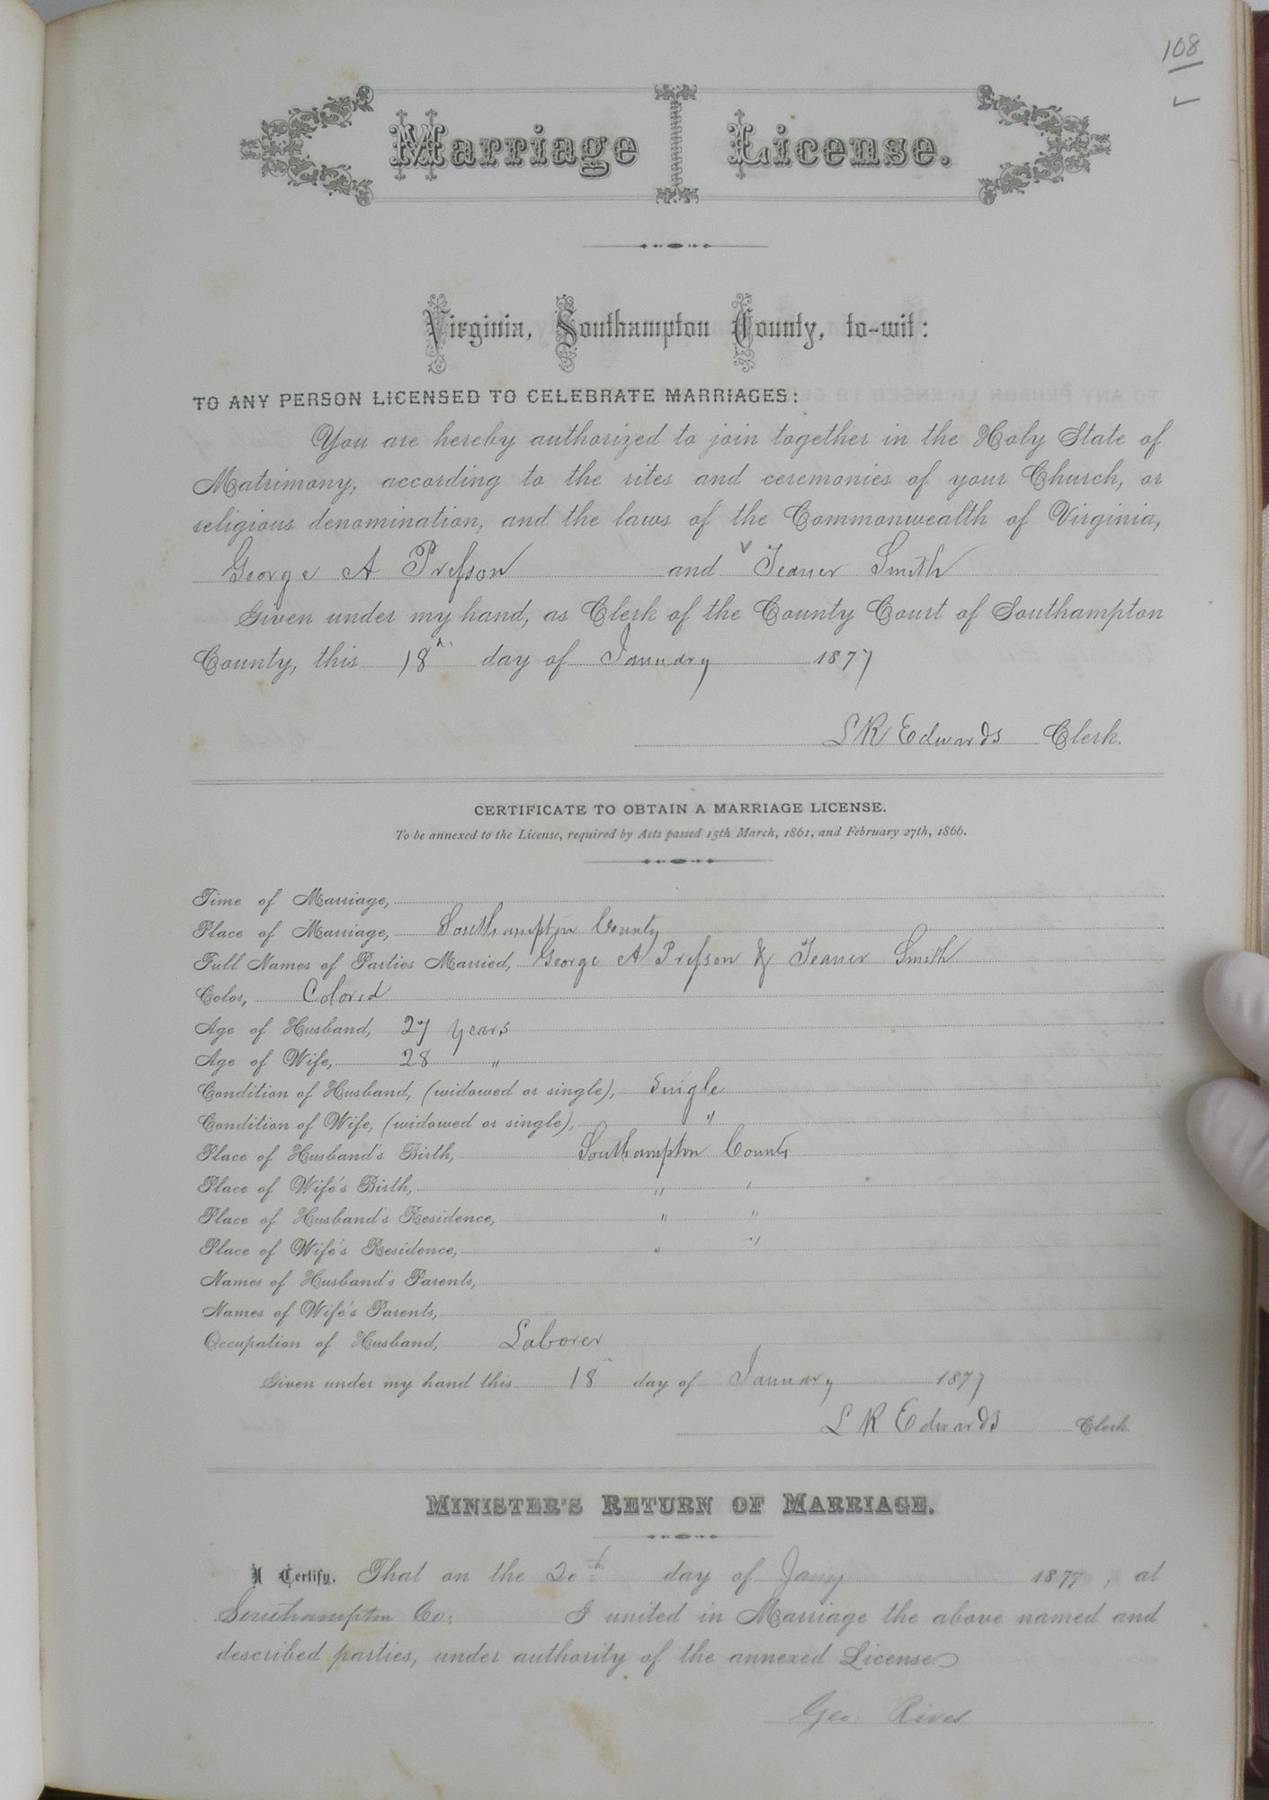 108
Marriage License.
Virginia, Southampton County, to-wit:
TO ANY PERSON LICENSED TO CELEBRATE MARRIAGES:
You are hereby authorized to join together in the Holy State of
Matrimony, according to the rites and ceremonies of your Church, or
religious denomination, and the laws of the Commonwealth of Virginia,
George A Presson and Teaner Smith
Given under my hand, as Clerk of the County Court of Southampton
County, this 18th day of January 1877
L R Edwards Clerk.
CERTIFICATE TO OBTAIN A MARRIAGE LICENSE.
To be annexed to the License, required by Acts passed 15th March, 1861, and February 27th, 1866.
Time of Marriage,
Place of Marriage, Southampton County
Full Names of Parties Married, George A Presson & Teaner Smith
Color, Colored
Age of Husband, 27 years
Age of Wife, 28 "
Condition of Husband, (widowed or single), Single
Condition of Wife, (widowed or single), "
Place of Husband's Birth, Southampton County
Place of Wife's Birth, " "
Place of Husband's Residence, " "
Place of Wife's Residence, " "
Names of Husband's Parents,
Names of Wife's Parents,
Occupation of Husband, Laborer
Given under my hand this 18 day of January 1877
L R Edwards Clerk.
MINISTER'S RETURN OF MARRIAGE.
I Certify, That on the 20th day of Jany 1877, at
Southampton Co: I united in Marriage the above named and
described parties, under authority of the annexed License
Geo. Rives